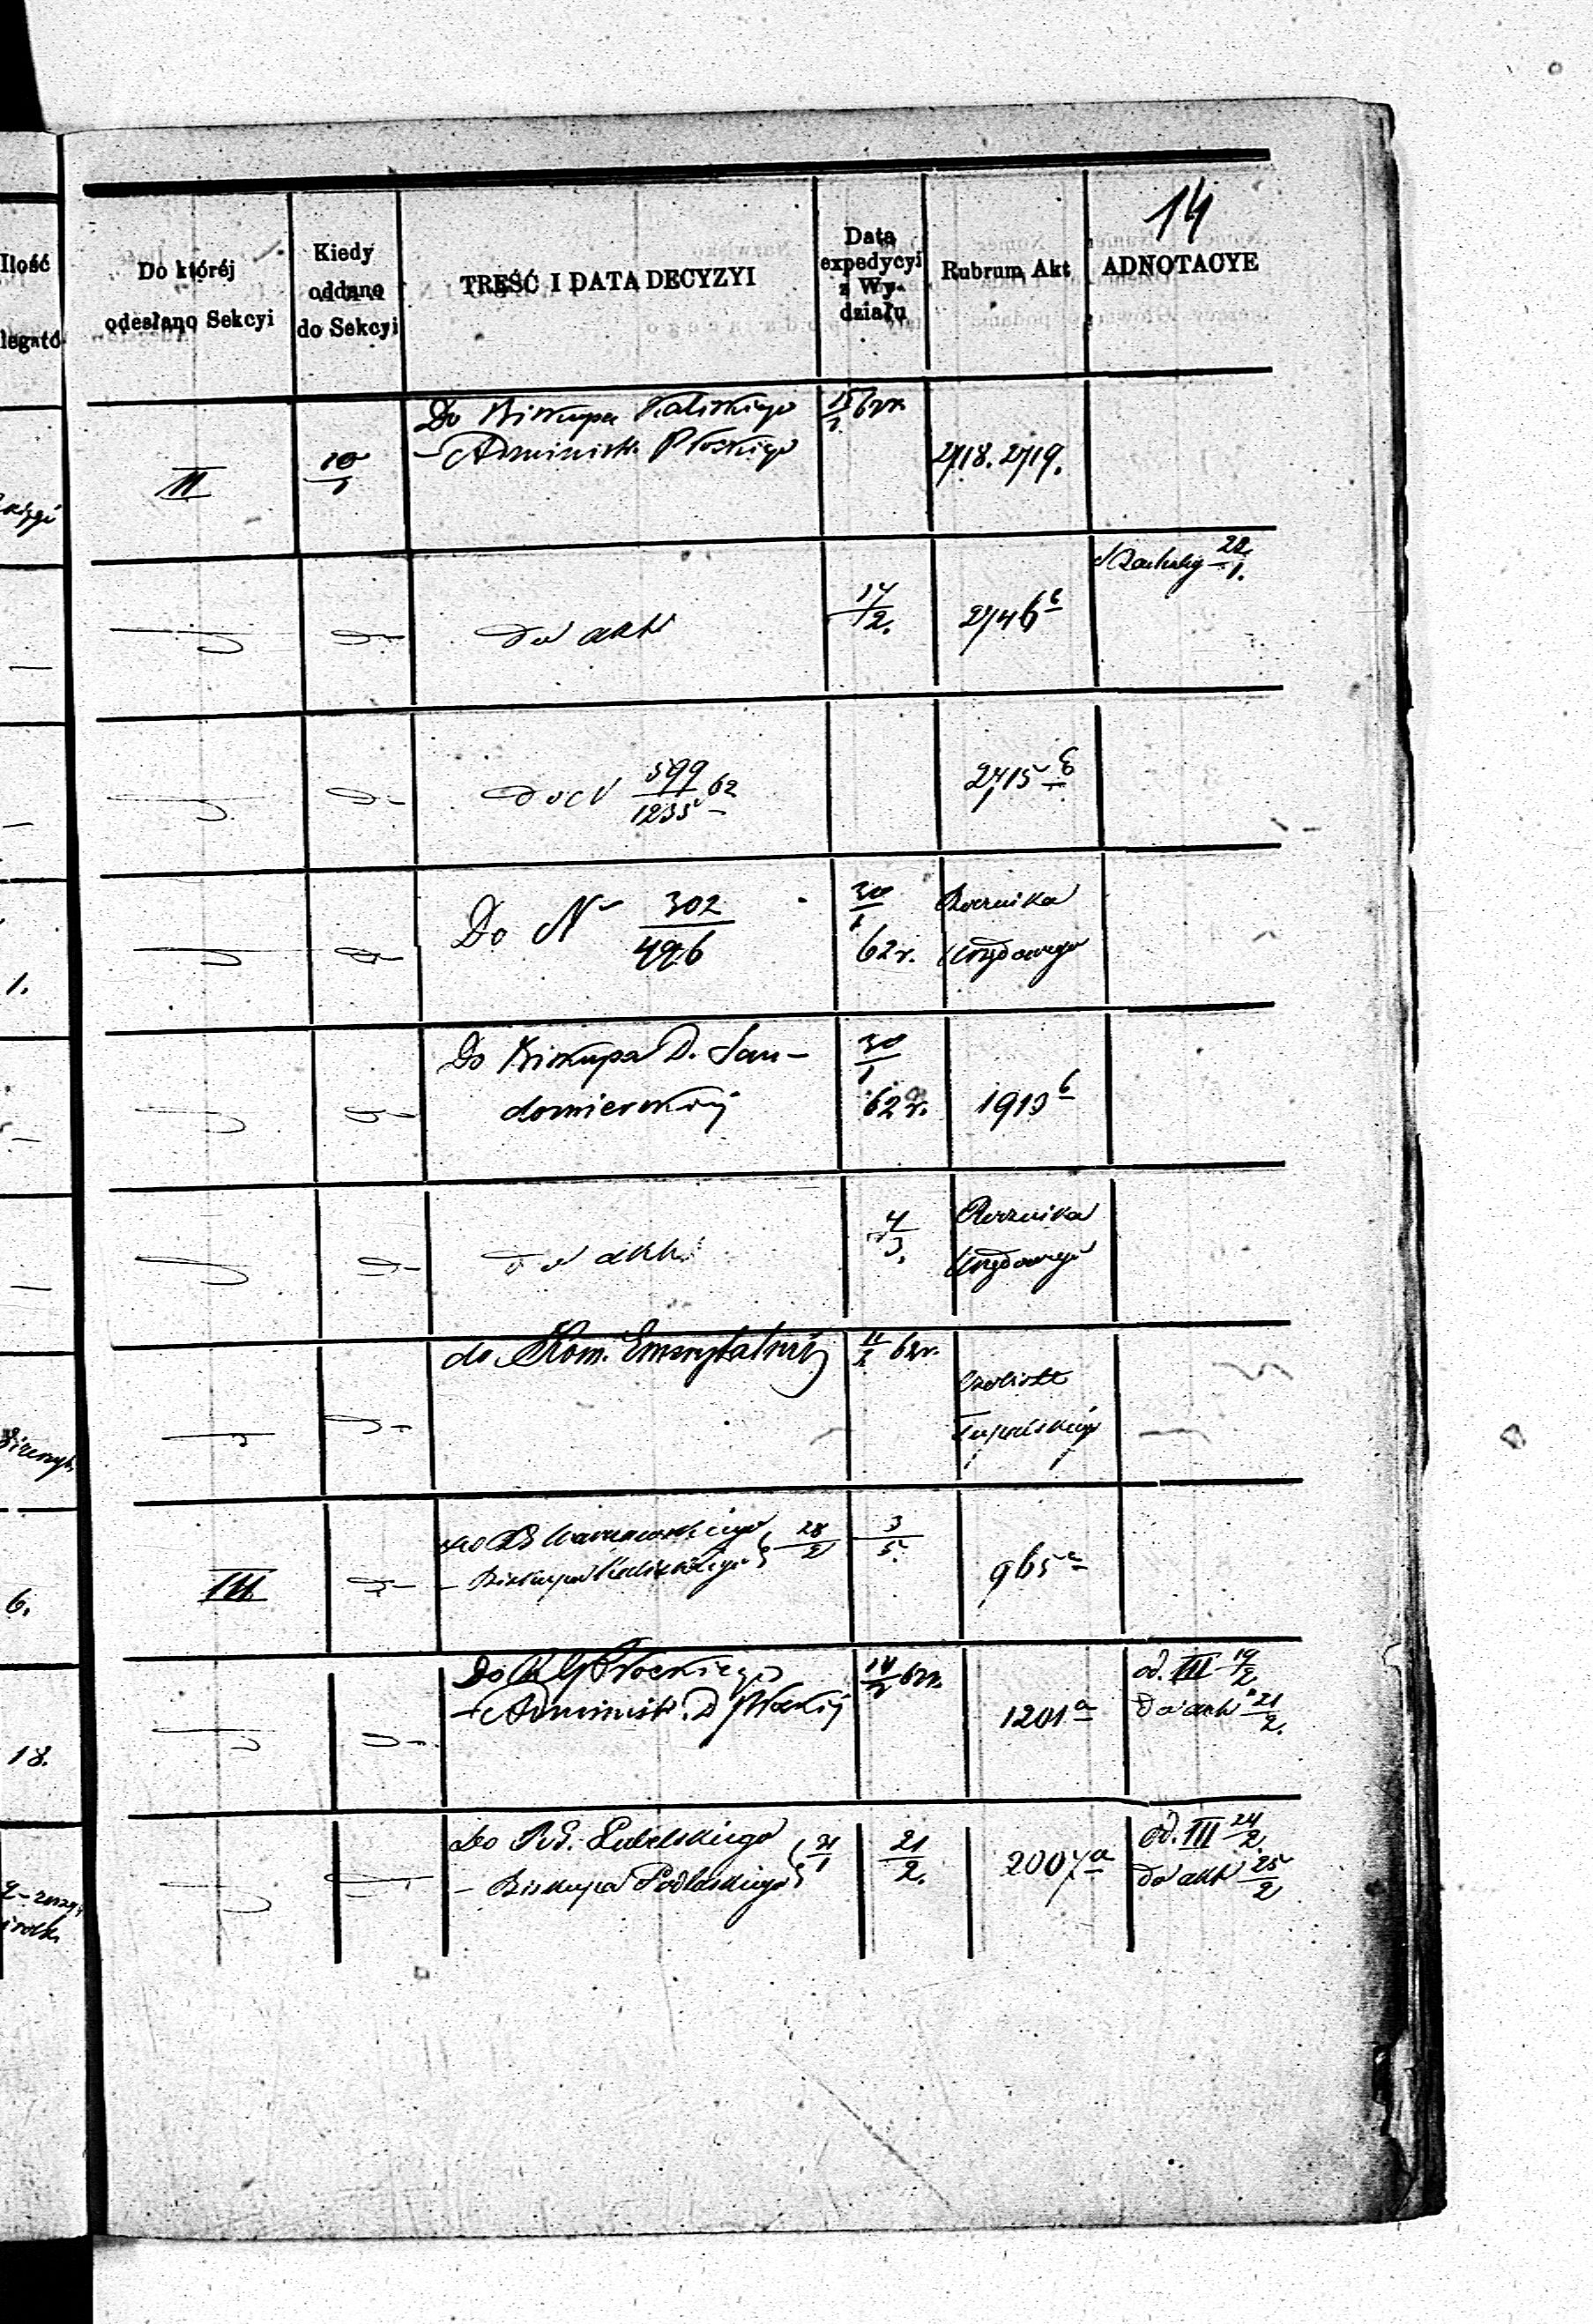 14
Ilość
legató
Do któréj
odesłano Sekcyi
Kiedy
oddano
do Sekcyi
TREŚĆ I DATA DECYZYI
Data
expedycyi
z Wy-
działu
Rubrum Akt
ADNOTACYE
II
10/1
Do Biskupa Kaliskiego
– Administr. Płockiego
15/1 62r.
2718. 2719.
do akt
17/2.
2746
22/1.
do N 599/1235 62
2715
Do N 302/496
30/1
62 r.
Rocznika
Urzędowego
1.
Do Biskupa D. San-
domierskiej
30/1
62 r.
1913 b
do akt
4/3.
Rocznika
Urzędowego
do Kom. Emerytalnéj
11/2 62r.
III
do RG Warszawskiego
– Biskupa Kaliskiego
28/2
3/5.
965
6.
Do RG Płockiego
– Administr. D. Płockiéj
14/2 62r.
1201 a
od. III 19/2
Do akt 21/2.
18.
do R.G. Lubelskiego
– Biskupa Podlaskiego
21/1
21/2.
2007 a
od. III 24/2
Do akt 25/2